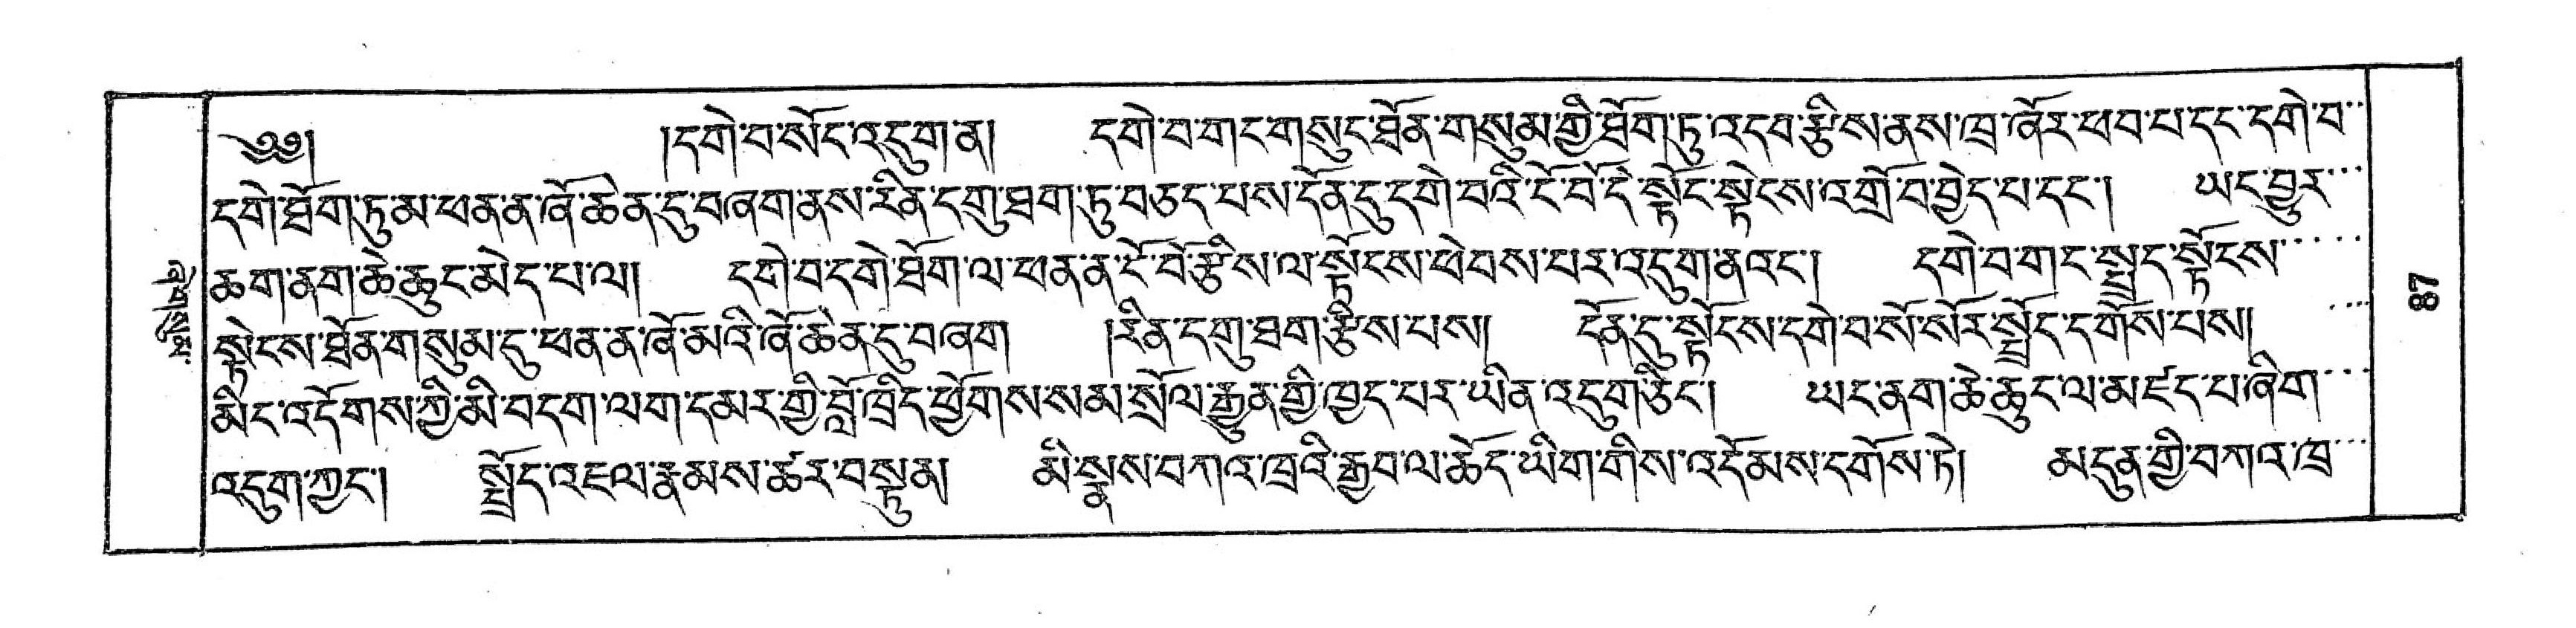 ༄༅། །དགེ་བ་སོང་འདུག་ན། དགེ་བ་གང་གསུང་ཐོན་གསུམ་གྱི་ཐོག་ཏུ་འདབ་རྩིས་ནས་ཁྲ་ཞོར་ཕབ་པ་དང་དགེ་བ་
དགེ་ཐོག་ཏུ་མ་ཕན་ན་ཞོ་ཆེན་དུ་བཞག་ནས་རིན་དགུ་ཐག་ཏུ་བཅད་པས་དོན་དུ་དགེ་བའི་ངོ་བོ་དེ་སྟོང་སྟེངས་འགྲོ་བ་བྱེད་པ་དང་། ཡང་བྱུར་
ཆག་ནག་ཆེ་ཆུང་མེད་པ་ལ། དགེ་བ་དགེ་ཐོག་ལ་ཕན་ན་ངོ་བོ་རྩིས་ལ་སྟོངས་ཕེབས་པར་འདུག་ནའང་། དགེ་བ་གང་སྤྲད་སྟོངས་
སྟེངས་ཐོན་གསུམ་དུ་ཕན་ན་ཞོ་མའི་ཞོ་ཆེན་དུ་བཞག །རིན་དགུ་ཐག་རྩིས་པས། དོན་དུ་སྟོངས་དགེ་བ་སོ་སོར་སྤྲོད་དགོས་པས།
མིང་འདོགས་ཀྱི་མི་བདག་ལག་དམར་གྱི་བློ་ཁྲིད་ཕྱོགས་སམ་སྲོལ་རྒྱུན་གྱི་ཁྱད་པར་ཡིན་འདུག་ཅིང་། ཡང་ནག་ཆེ་ཆུང་ལ་མ་ཛད་པ་ཞིག་
འདུག་ཀྱང་། སྤྲོད་འཇལ་རྣམས་ཚར་བསྟུན། མི་སྣས་བཀའ་ཁྲའི་རྒྱབ་ལ་ཆོད་ཡིག་གིས་འདོམས་དགོས་ཏེ། མདུན་གྱི་བཀའ་ཁྲ་